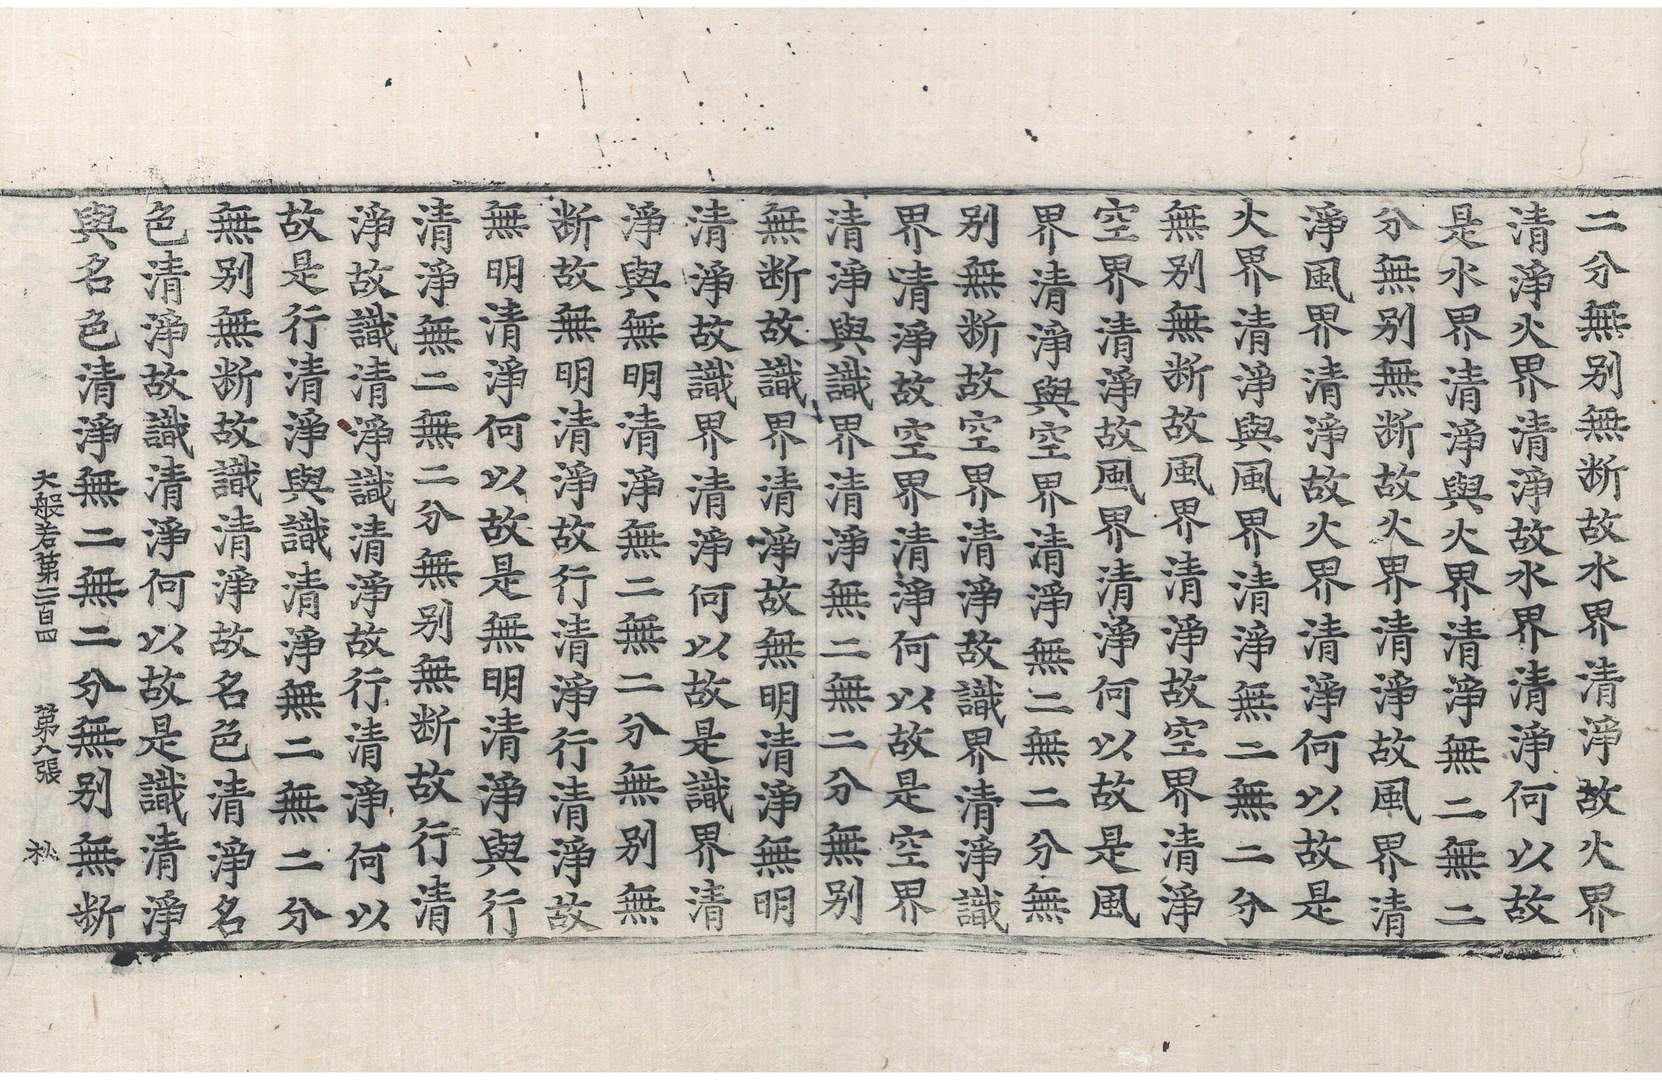 二分無别無断故水界清淨故火界
清淨火界清淨故水界清淨何以故
是水界清淨與火界清淨無二無二
分無别無断故火界清淨故風界清
淨風界清淨故火界清淨何以故是
火界清淨與風界清淨無二無二分
無别無断故風界清淨故空界清淨
空界清淨故風界清淨何以故是風
界清淨與空界清淨無二無二分無
别無断故空界清淨故識界清淨識
界清淨故空界清淨何以故是空界
清淨與識界清淨無二無二分無别
無断故識界清淨故無明清淨無明
清淨故識界清淨何以故是識界清
淨與無明清淨無二無二分無别無
断故無明清淨故行清淨行清淨故
無明清淨何以故是無明清淨與行
清淨無二無二分無别無断故行清
淨故識清淨識清淨故行清淨何以
故是行清淨與識清淨無二無二分
無别無断故識清淨故名色清淨名
色清淨故識清淨何以故是識清淨
與名色清淨無二無二分無别無断
大般若第二百四 第八張 秋